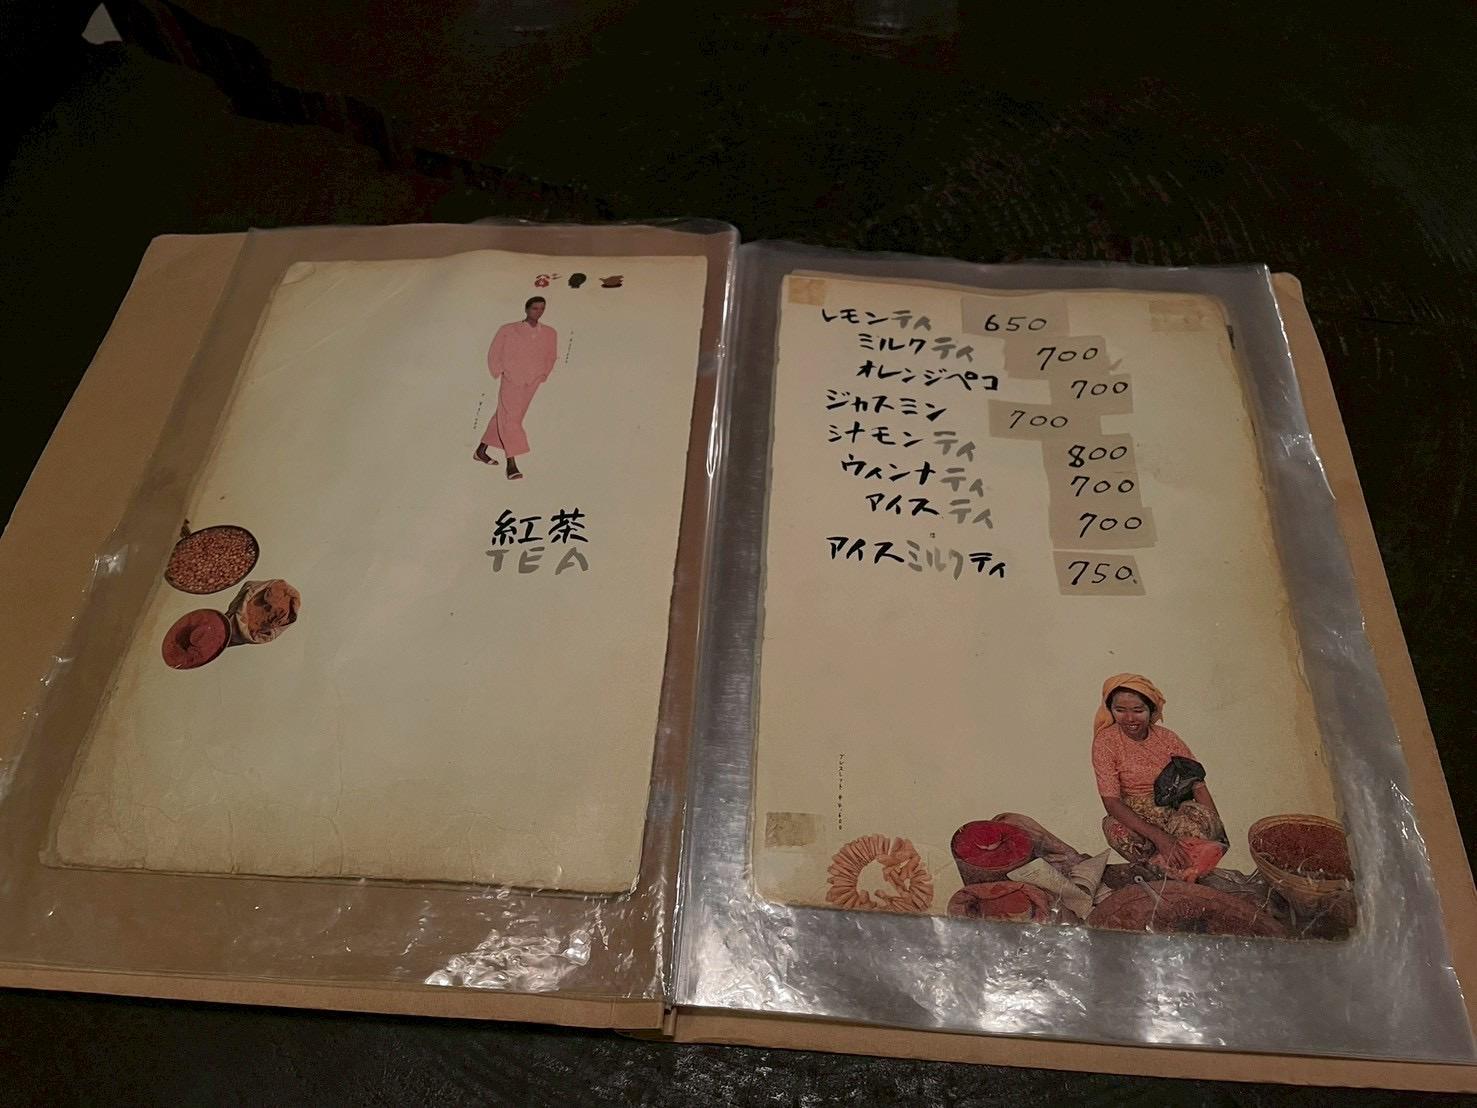 紅茶
TEA
レモンティ 650
ミルクティ 700
オレンジペコ 700
ジャスミン 700
シナモンティ 800
ウィンナティ 700
アイスティ 700
アイスミルクティ 750.